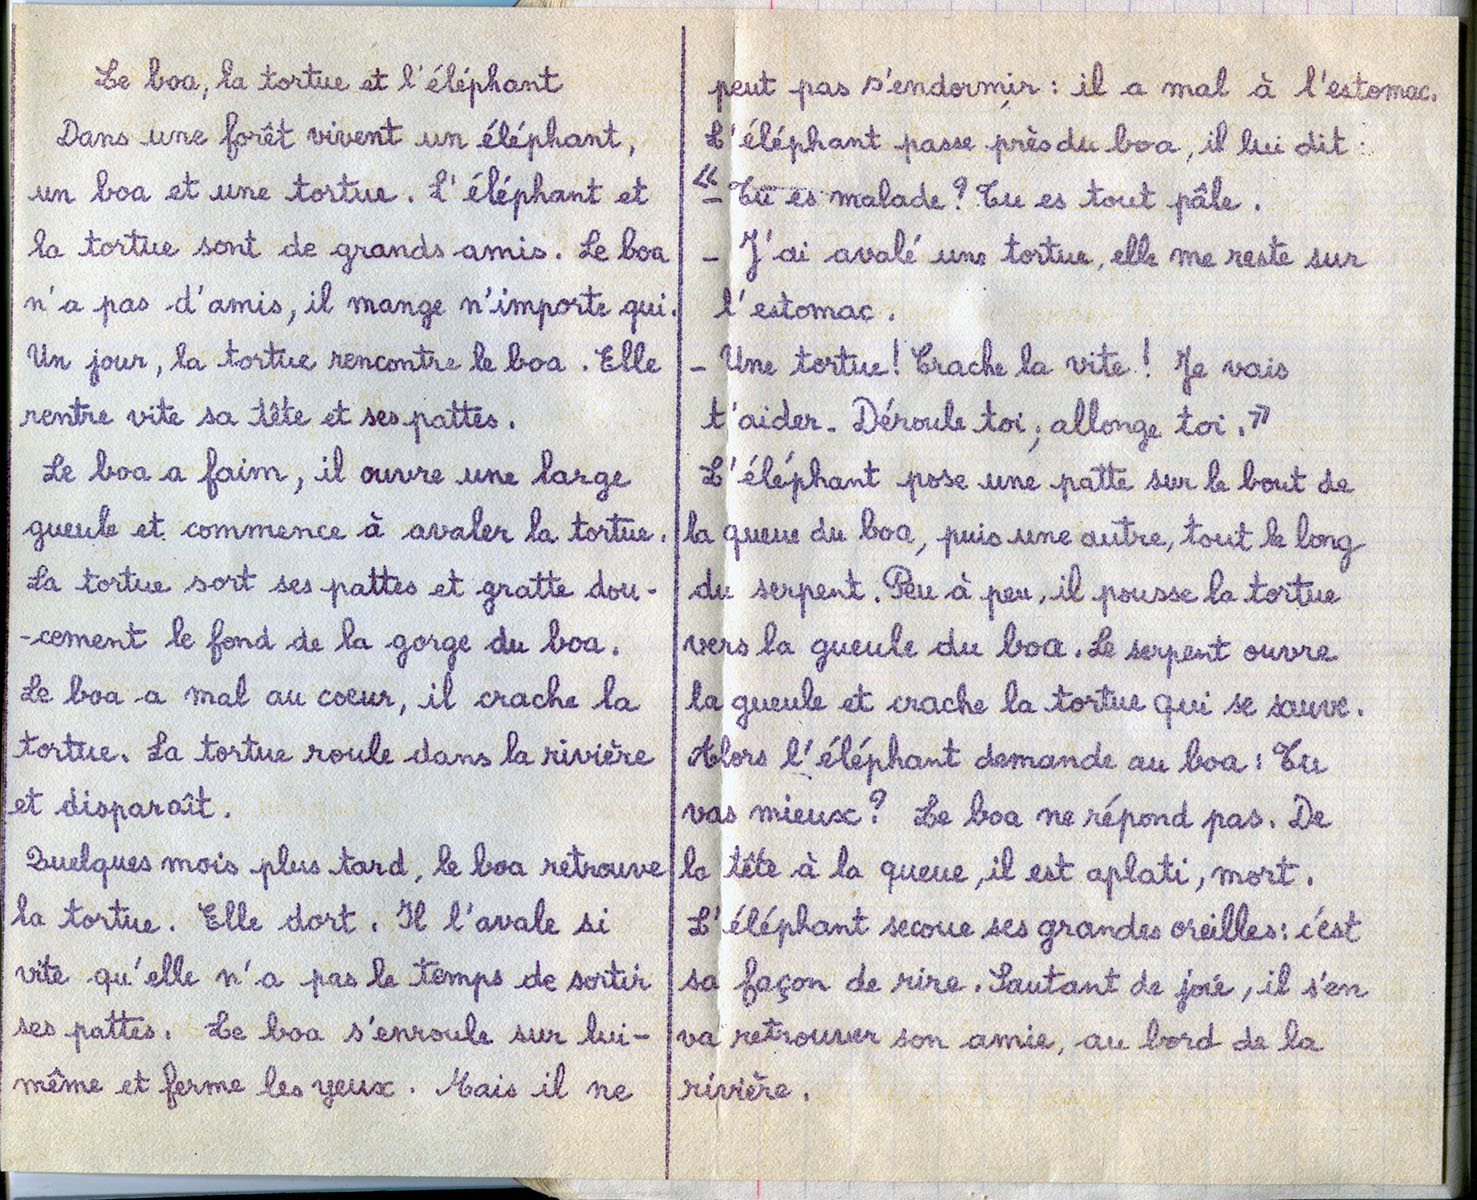 Le boa, la tortue et l'éléphant
Dans une forêt vivent un éléphant,
un boa et une tortue. L'éléphant et
la tortue sont de grands amis. Le boa
n'a pas d'amis, il mange n'importe qui.
Un jour, la tortue rencontre le boa. Elle
rentre vite sa tête et ses pattes.
Le boa a faim, il ouvre une large
gueule et commence à avaler la tortue.
La tortue sort ses pattes et gratte dou-
-cement le fond de la gorge du boa.
Le boa a mal au coeur, il crache la
tortue. La tortue roule dans la rivière
et disparaît.
Quelques mois plus tard, le boa retrouve
la tortue. Elle dort. Il l'avale si
vite qu'elle n'a pas le temps de sortir
ses pattes. Le boa s'enroule sur lui-
même et ferme les yeux. Mais il ne
peut pas s'endormir : il a mal à l'estomac.
L'éléphant passe près du boa, il lui dit :
« – Tu es malade ? Tu es tout pâle.
– J'ai avalé une tortue, elle me reste sur
l'estomac.
– Une tortue ! Crache la vite ! Je vais
t'aider. Déroule toi, allonge toi. »
L'éléphant pose une patte sur le bout de
la queue du boa, puis une autre, tout le long
du serpent. Peu à peu, il pousse la tortue
vers la gueule du boa. Le serpent ouvre
la gueule et crache la tortue qui se sauve.
Alors l'éléphant demande au boa : Tu
vas mieux ? Le boa ne répond pas. De
la tête à la queue, il est aplati, mort.
L'éléphant secoue ses grandes oreilles : c'est
sa façon de rire. Sautant de joie, il s'en
va retrouver son amie, au bord de la
rivière.